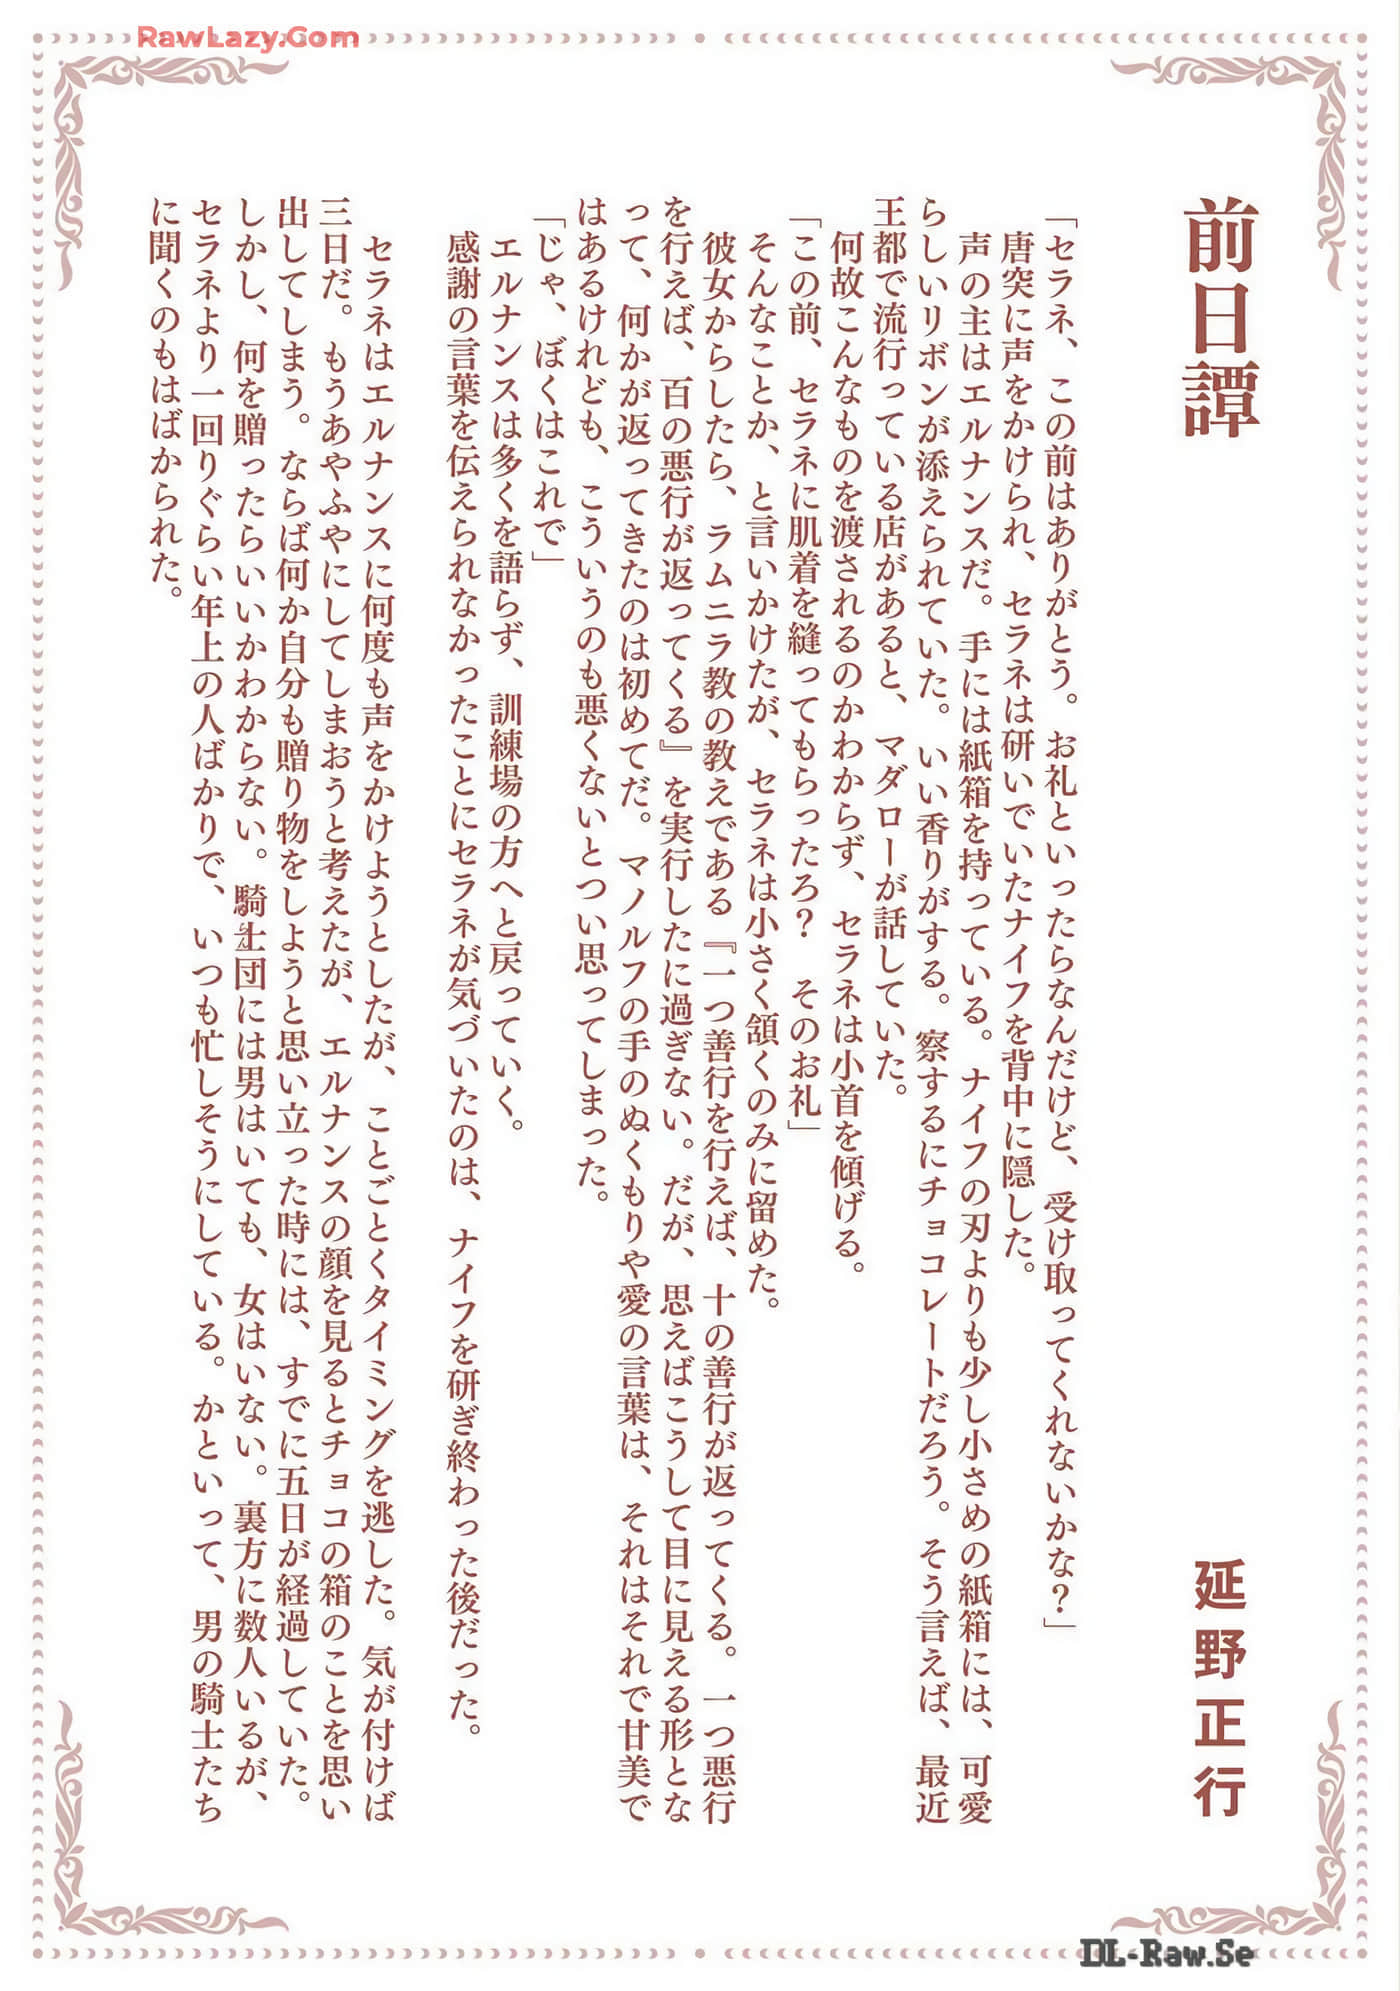 RawLazy.Com
前日譚
延野正行
「セラネ、この前はありがとう。お礼といったらなんだけど、受け取ってくれないかな？」
唐突に声をかけられ、セラネは研いでいたナイフを背中に隠した。
声の主はエルナンスだ。手には紙箱を持っている。ナイフの刃よりも少し小さめの紙箱には、可愛
らしいリボンが添えられていた。いい香りがする。察するにチョコレートだろう。そう言えば、最近
王都で流行っている店があると、マダローが話していた。
何故こんなものを渡されるのかわからず、セラネは小首を傾げる。
「この前、セラネに肌着を縫ってもらったろ？　そのお礼」
そんなことか、と言いかけたが、セラネは小さく頷くのみに留めた。
彼女からしたら、ラムニラ教の教えである『一つ善行を行えば、十の善行が返ってくる。一つ悪行
を行えば、百の悪行が返ってくる』を実行したに過ぎない。だが、思えばこうして目に見える形とな
って、何かが返ってきたのは初めてだ。マノルフの手のぬくもりや愛の言葉は、それはそれで甘美で
はあるけれども、こういうのも悪くないとつい思ってしまった。
「じゃ、ぼくはこれで」
エルナンスは多くを語らず、訓練場の方へと戻っていく。
感謝の言葉を伝えられなかったことにセラネが気づいたのは、ナイフを研ぎ終わった後だった。
セラネはエルナンスに何度も声をかけようとしたが、ことごとくタイミングを逃した。気が付けば
三日だ。もうあやふやにしてしまおうと考えたが、エルナンスの顔を見るとチョコの箱のことを思い
出してしまう。ならば何か自分も贈り物をしようと思い立った時には、すでに五日が経過していた。
しかし、何を贈ったらいいかわからない。騎士団には男はいても、女はいない。裏方に数人いるが、
セラネより一回りぐらい年上の人ばかりで、いつも忙しそうにしている。かといって、男の騎士たち
に聞くのもはばかられた。
DL-Raw.Se